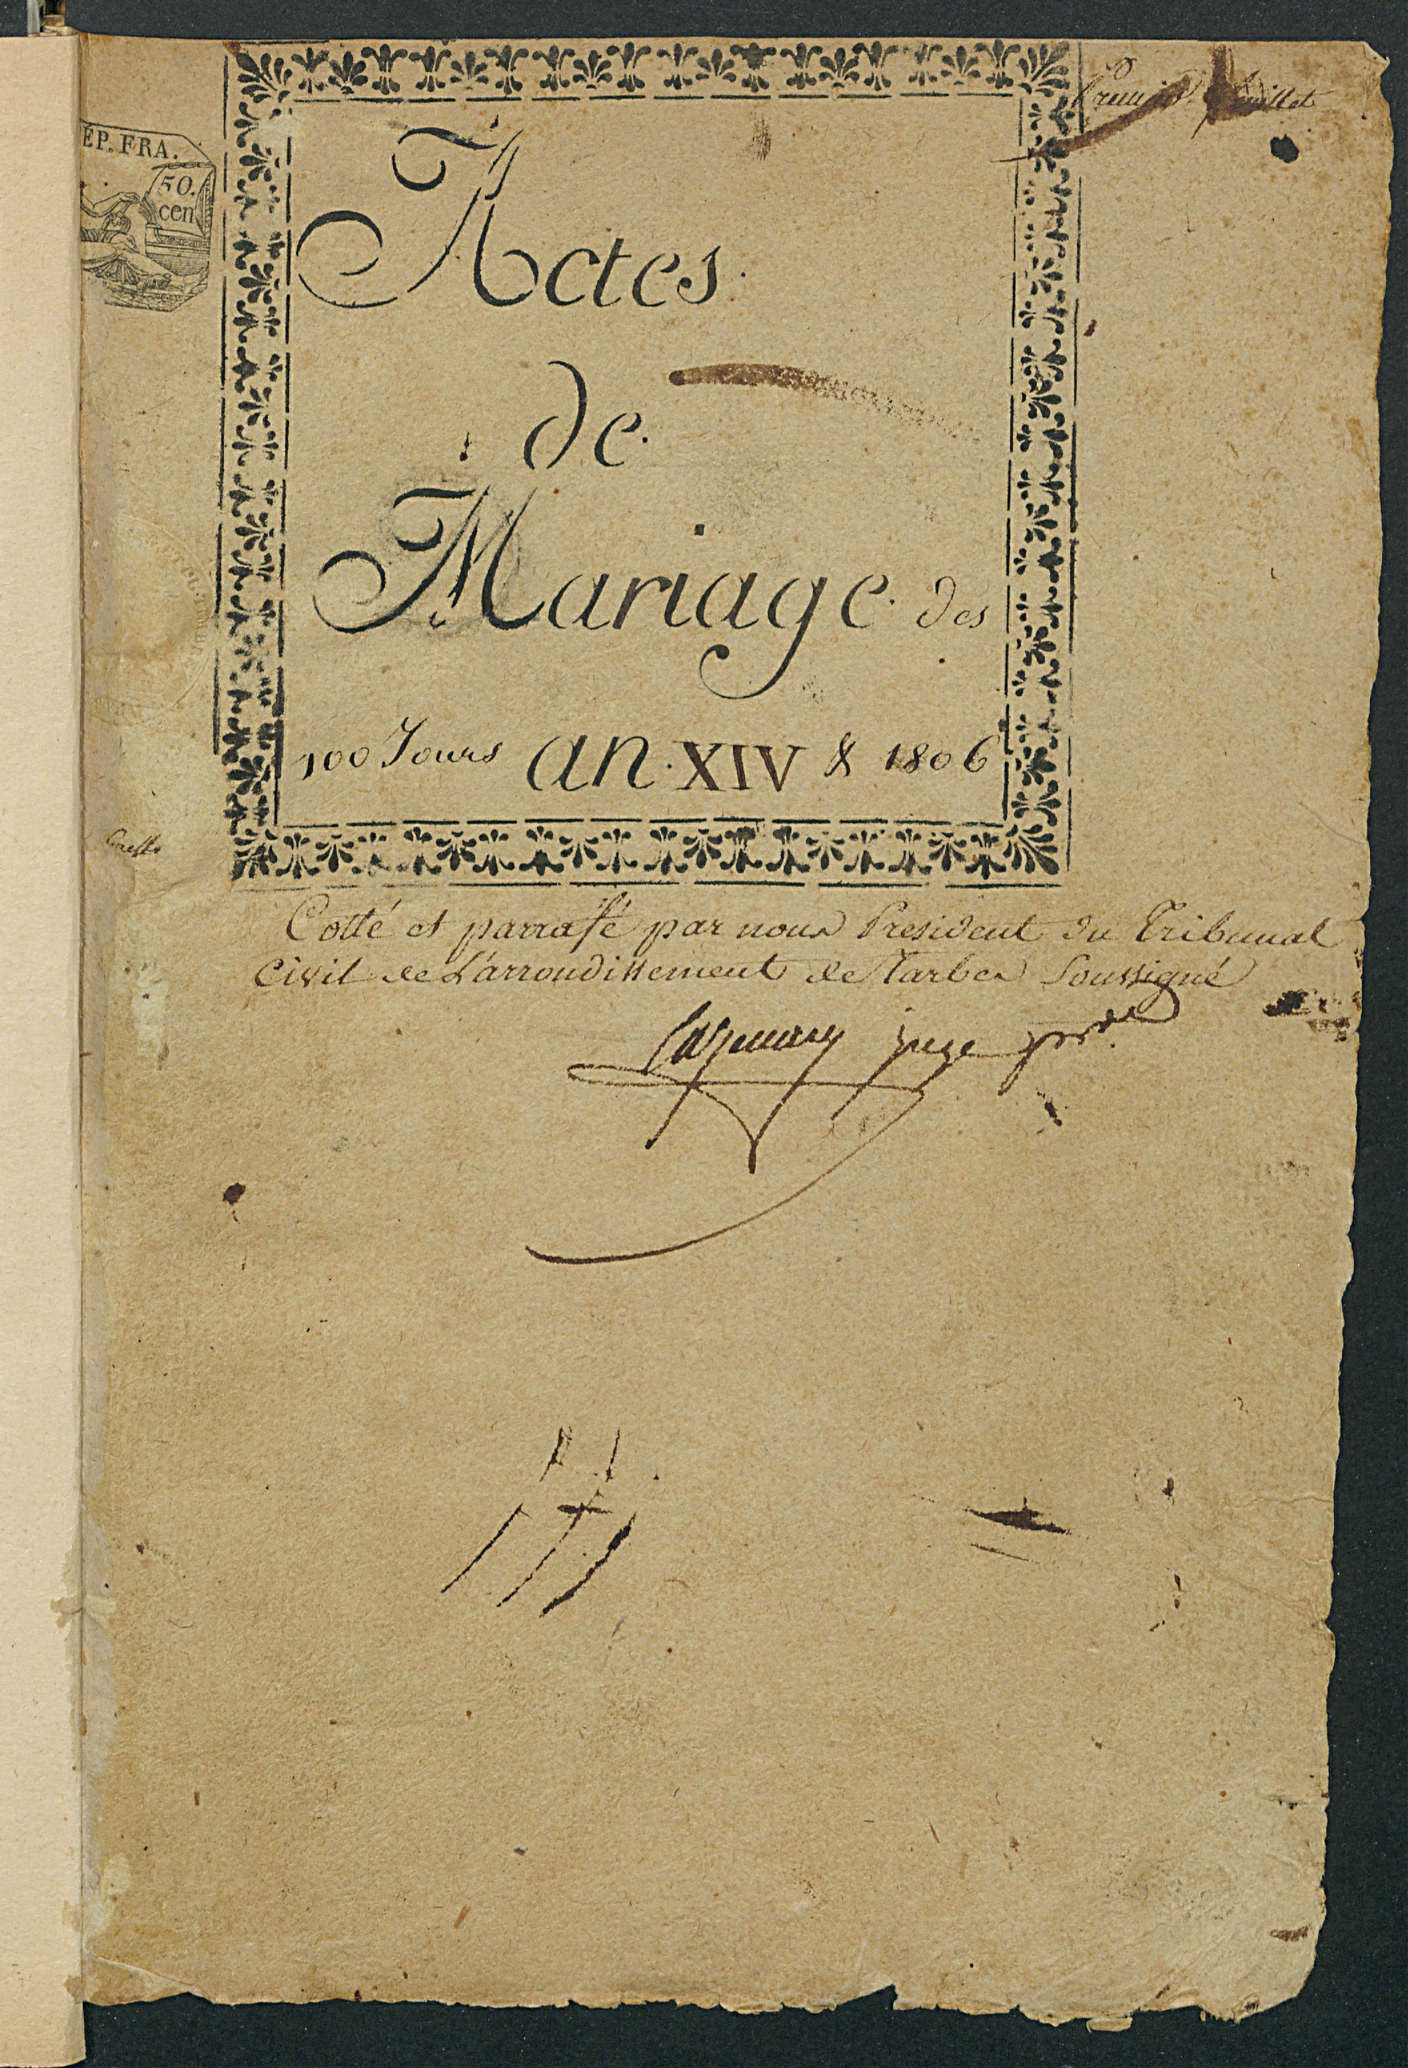 Premier feuillet
REP. FRA.
50.
cen
Actes
de
Mariage des
100 Jours an XIV & 1806
Cotté et parrafé par nous President du Tribunal
Civil de L'arrondissement de Tarbes Soussigné
juge prdt